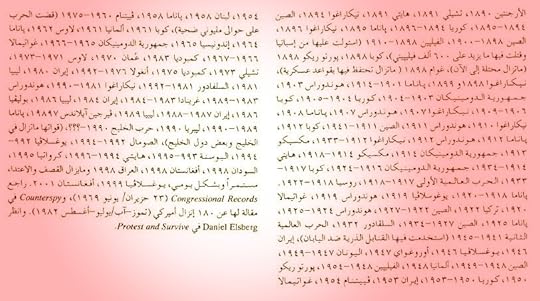 الأرجنتين ١٨٩٠، تشيلي ١٨٩١، هايتي ١٨٩١، نيكاراغوا ١٨٩٤، الصين
١٨٩٤-١٨٩٥، كوريا ١٨٩٤-١٨٩٦، پاناما ١٨٩٥، نيكاراغوا ١٨٩٦،
الصين ١٨٩٨-١٩٠٠، الفيليپين ١٨٩٨-١٩١٠ (استولت عليها من إسپانيا
وقتلت فيها ما يزيد على ٦٠٠ ألف فيليپيني)، كوبا ١٨٩٨، پورتو ريكو ١٨٩٨
(ماتزال محتلة إلى الآن)، غوام ١٨٩٨ (ماتزال تحتفظ فيها بقواعد عسكرية)،
نيكاراغوا ١٨٩٨ و١٨٩٩، پاناما ١٩٠١-١٩١٤، هوندوراس ١٩٠٣،
جمهورية الدومينيكان ١٩٠٣-١٩٠٤، كوريا ١٩٠٤-١٩٠٥، كوبا
١٩٠٦-١٩٠٩، نيكاراغوا ١٩٠٧، هوندوراس ١٩٠٧، پاناما ١٩٠٨،
نيكاراغوا ١٩١٠، هوندوراس ١٩١١، الصين ١٩١١-١٩٤١، كوبا ١٩١٢،
پاناما ١٩١٢، هوندوراس ١٩١٢، نيكاراغوا ١٩١٢-١٩٣٣، مكسيكو
١٩١٣، جمهورية الدومينيكان ١٩١٤، مكسيكو ١٩١٤-١٩١٨، هايتي
١٩١٤-١٩٣٤، جمهورية الدومينيكان ١٩١٦-١٩٢٤، كوبا ١٩١٧-
١٩٣٣، الحرب العالمية الأولى ١٩١٧-١٩١٨، روسيا ١٩١٨-١٩٢٢،
پاناما ١٩١٨-١٩٢٠، يوغسلافيا ١٩١٩، هوندوراس ١٩١٩، غواتيمالا
١٩٢٠، تركيا ١٩٢٢، الصين ١٩٢٢-١٩٢٧، هوندوراس ١٩٢٤-١٩٢٥،
پاناما ١٩٢٥، الصين ١٩٢٧-١٩٣٤، السلڤادور ١٩٣٢، الحرب العالمية
الثانية ١٩٤١-١٩٤٥ (استخدمت فيها القنابل الذرية ضد اليابان)، إيران
١٩٤٦، يوغسلافيا ١٩٤٦، أوروغواي ١٩٤٧، اليونان ١٩٤٧-١٩٤٩،
الصين ١٩٤٨-١٩٤٩، ألمانيا ١٩٤٨، الفيليپين ١٩٤٨-١٩٥٤، پورتو ريكو
١٩٥٠، كوريا ١٩٥٠-١٩٥٣، إيران ١٩٥٣، ڤييتنام ١٩٥٤، غواتيمالا
١٩٥٤، لبنان ١٩٥٨، پاناما ١٩٥٨، ڤيتنام ١٩٦٠-١٩٧٥ (قضت الحرب
على حوالي مليوني ضحية)، كوبا ١٩٦١، ألمانيا ١٩٦١، لاوس ١٩٦٢، پاناما
١٩٦٤، إندونسيا ١٩٦٥، جمهورية الدومينيكان ١٩٦٥-١٩٦٦، غواتيمالا
١٩٦٦-١٩٦٧، كمبوديا ١٩٨٣، عُمان ١٩٧٠، لاوس ١٩٧١-١٩٧٣،
تشيلي ١٩٧٣، كمبوديا ١٩٧٥، أنغولا ١٩٧٦-١٩٩٢، إيران ١٩٨٠، ليبيا
١٩٨١، السلڤادور ١٩٨١-١٩٩٢، نيكاراغوا ١٩٨١-١٩٩٠، هوندوراس
١٩٨٣-١٩٨٩، غرينادا ١٩٨٣-١٩٨٤، إيران ١٩٨٤، ليبيا ١٩٨٦، بوليڤيا
١٩٨٦، إيران ١٩٨٧-١٩٨٨، ليبيا ١٩٨٩، ڤيرجين آيلاندس ١٩٨٩، پاناما
١٩٨٩-١٩٩٠، ليبريا ١٩٩٠، حرب الخليج ١٩٩٠-؟؟؟ (قواتها ماتزال في
الخليج وبعض دول الخليج)، الصومال ١٩٩٢-١٩٩٤، يوغسلاڤيا ١٩٩٢-
١٩٩٤، البوسنة ١٩٩٣-١٩٩٥، هايتي ١٩٩٤-١٩٩٦، كرواتيا ١٩٩٥،
السودان ١٩٩٨، أفغانستان ١٩٩٨، العراق ١٩٩٨ ومايزال القصف والاعتداء
مستمراً وبشكل يومي، يوغسلاڤيا ١٩٩٩، أفغانستان ٢٠٠١. راجع
Congressional Records (٢٣ حزيران/ يونيو ١٩٦٩)، وCounterspy في
مقالة لها عن ١٨٠ إنزال أميركي (تموز-آب/يوليو-أغسطس ١٩٨٢). وانظر
Daniel Elsberg في Protest and Survive.